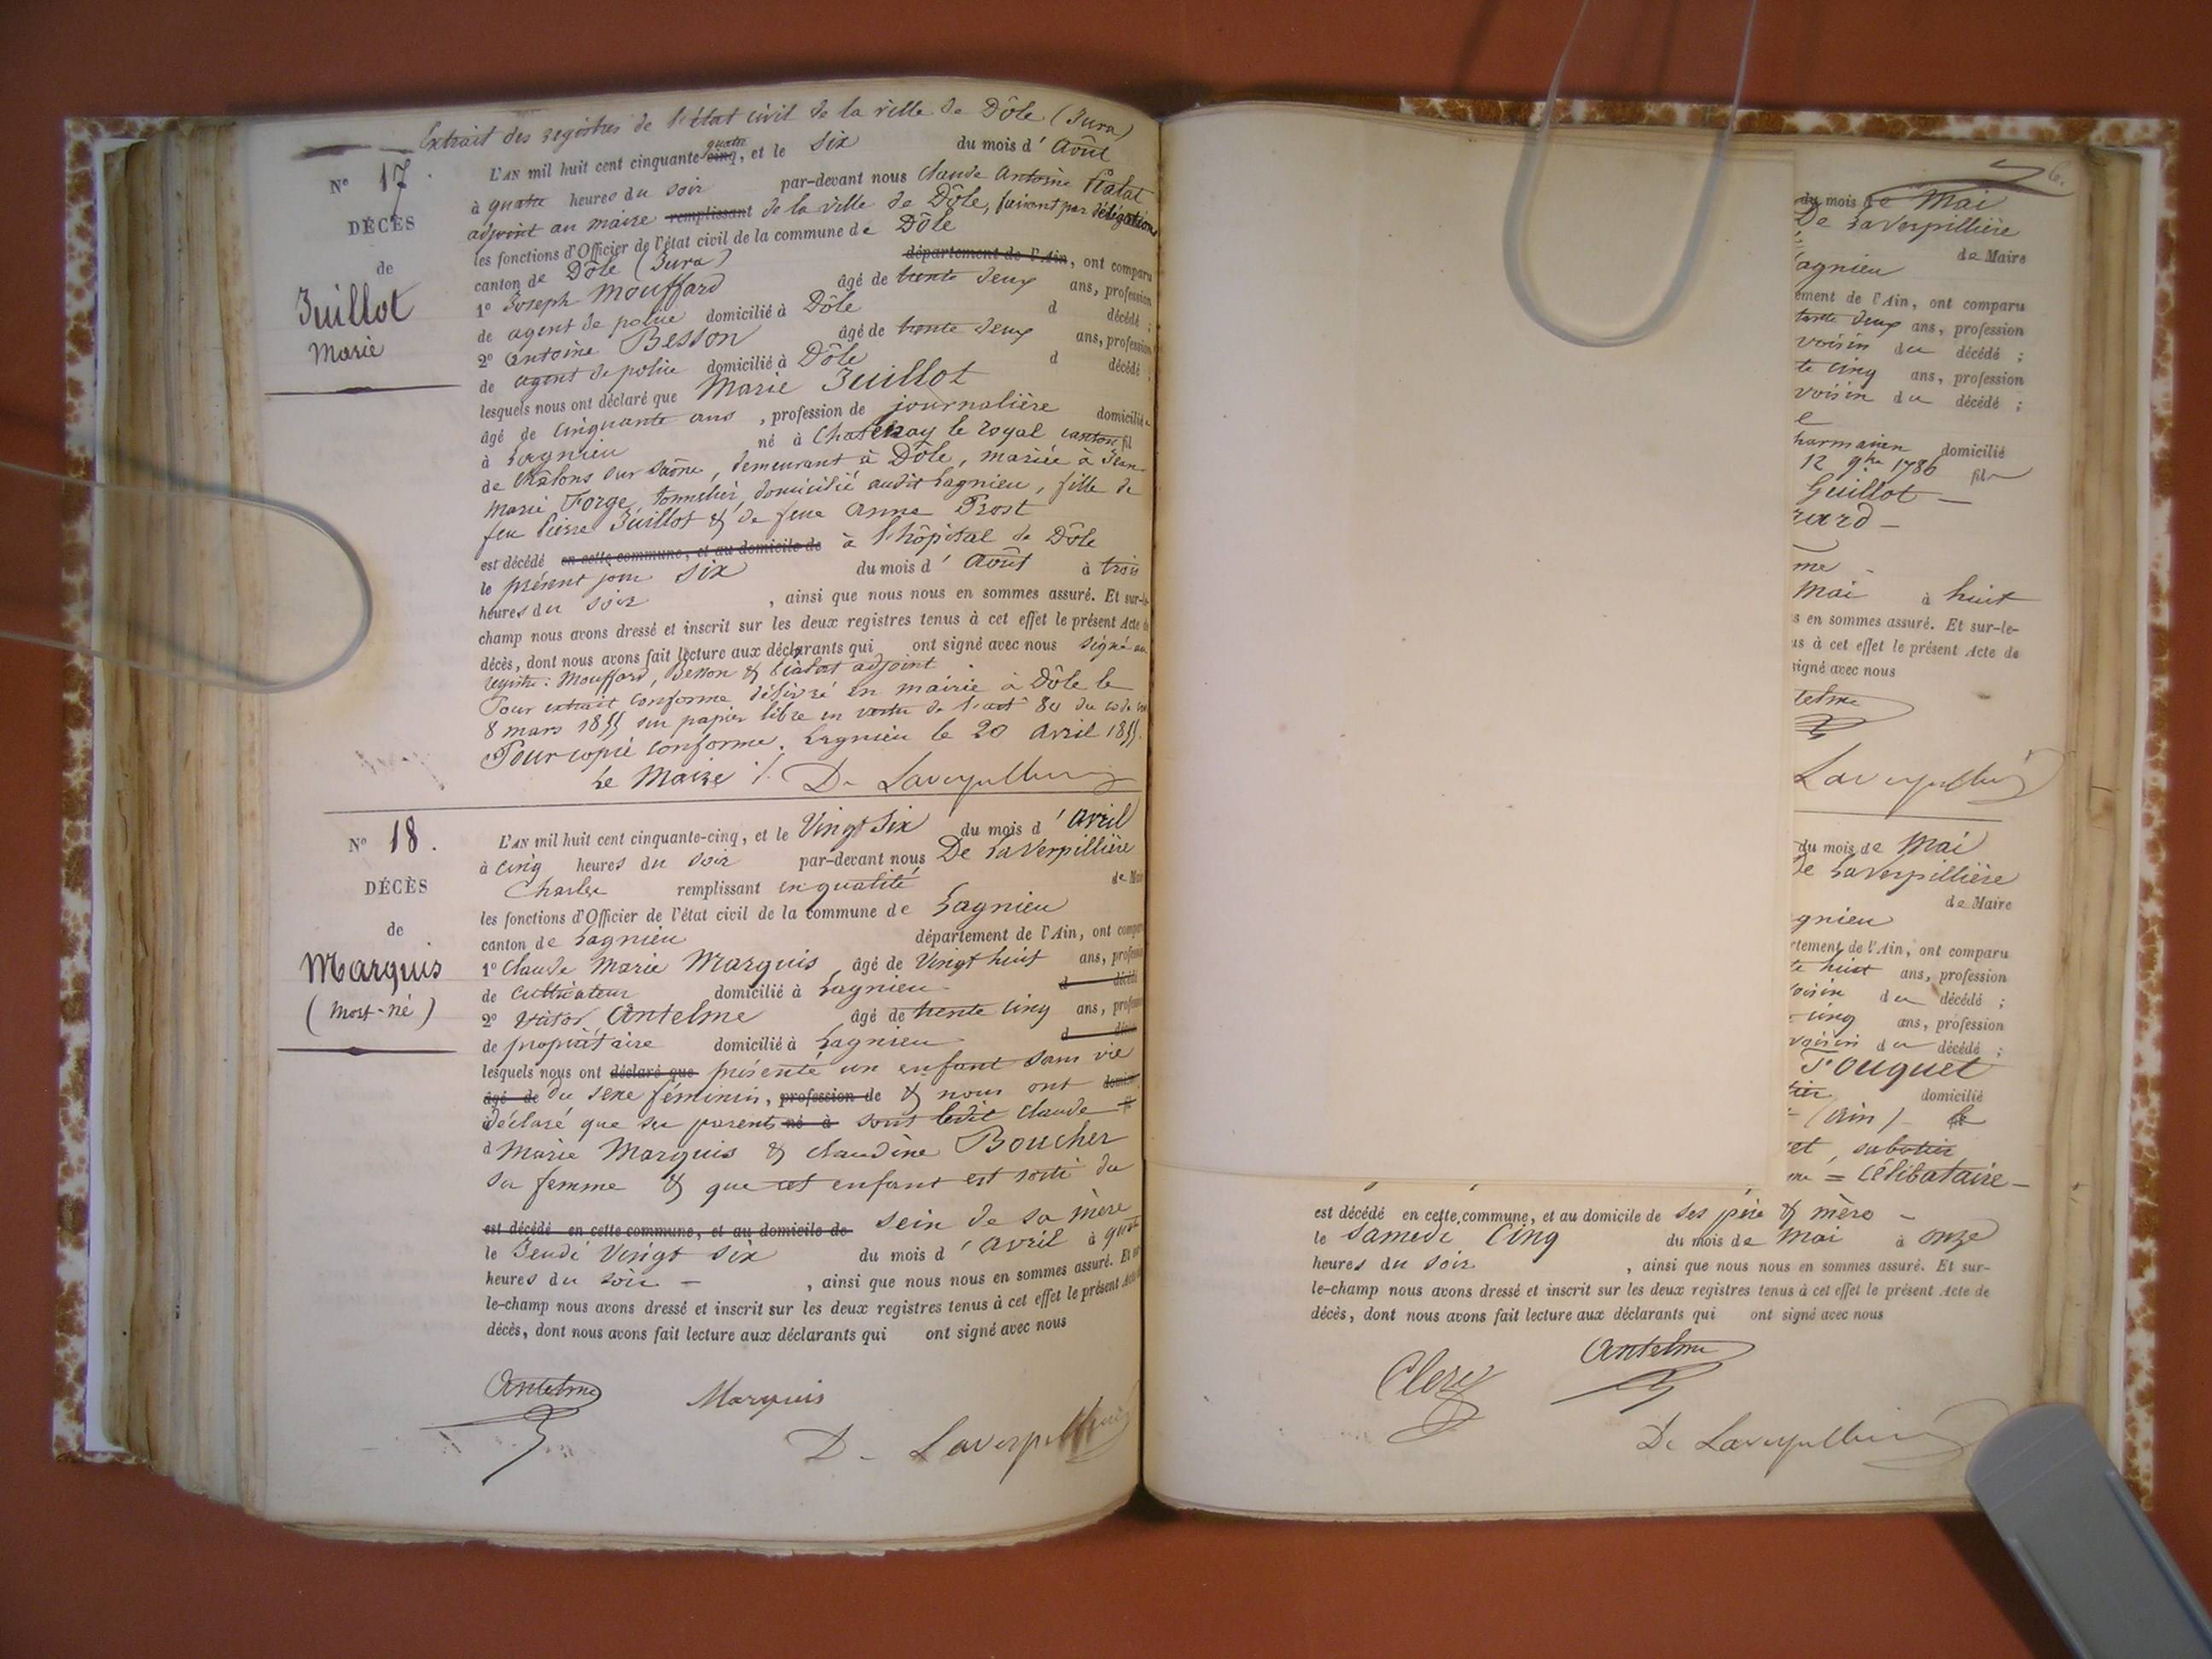 Extrait des registres de l'état civil de la ville de Dôle (Jura)
N° 17.
DÉCÈS
de
Juillot
Marie
L'AN mil huit cent cinquante-cinq quatre, et le six du mois d'Août
à quatre heures du soir par-devant nous Claude Antoine
adjoint au maire remplissant de la ville de Dôle, faisant par délégation
les fonctions d'Officier de l'état civil de la commune de Dôle
canton de Dôle (Jura) département de l'Ain, ont comparu
1° Joseph Mouffard âgé de trente deux ans, profession
de agent de police domicilié à Dôle d décédé ;
2° Antoine Besson âgé de trente deux ans, profession
de agent de police domicilié à Dôle d décédé ;
lesquels nous ont déclaré que Marie Juillot
âgé de cinquante ans, profession de journalière domiciliée
à Lagnieu né à Chatenay le royal canton fil
de Châlons sur Saône, demeurant à Dôle, mariée à Jean
Marie Forge, tonnelier, domicilié audit Lagnieu, fille de
feu Pierre Juillot & de feue Anne Prost
est décédé en cette commune, et au domicile de à l'hôpital de Dôle
le présent jour six du mois d'Août à trois
heures du soir, ainsi que nous nous en sommes assuré. Et sur-le-
champ nous avons dressé et inscrit sur les deux registres tenus à cet effet le présent Acte de
décès, dont nous avons fait lecture aux déclarants qui ont signé avec nous signé au
registre : Mouffard, Besson & adjoint
Pour extrait conforme délivré en mairie à Dôle le
8 mars 1855 sur papier libre en vertu de l'art 80 du code
Pour copie conforme. Lagnieu le 20 Avril 1855.
Le Maire De Laverpillière
N° 18.
DÉCÈS
de
Marquis
(Mort-né)
L'AN mil huit cent cinquante-cinq, et le Vingt Six du mois d'Avril
à cinq heures du soir par-devant nous De LaVerpillière
Charles remplissant en qualité de Maire
les fonctions d'Officier de l'état civil de la commune de Lagnieu
canton de Lagnieu département de l'Ain, ont comparu
1° Claude Marie Marquis âgé de Vingt huit ans, profession
de cultivateur domicilié à Lagnieu d décédé
2° Victor Antelme âgé de trente cinq ans, profession
de propriétaire domicilié à Lagnieu d
lesquels nous ont déclaré que présenté un enfant sans vie
âgé de du sexe féminin, profession de & nous ont
déclaré que ses parents né à sont ledit Claude
d Marie Marquis & Claudine Boucher
sa femme & que cet enfant est sorti du
est décédé en cette commune, et au domicile de sein de sa mère
le Jeudi Vingt six du mois d'Avril à
heures du soir, ainsi que nous nous en sommes assuré. Et sur
le-champ nous avons dressé et inscrit sur les deux registres tenus à cet effet le présent Acte
décès, dont nous avons fait lecture aux déclarants qui ont signé avec nous
Antelme Marquis
De Laverpillière
6.
du mois de Mai
De LaVerpillière
de Maire
agnieu
ement de l'Ain, ont comparu
deux ans, profession
voisin du décédé ;
te cinq ans, profession
voisin du décédé ;
e
domicilié
12 9bre 1786 fils
Guillot
rard
me
Mai à huit
s en sommes assuré. Et sur-le-
us à cet effet le présent Acte de
signé avec nous
telme
Laverpillière
du mois de Mai
De LaVerpillière
de Maire
gnieu
rtement de l'Ain, ont comparu
te huit ans, profession
voisin du décédé ;
cinq ans, profession
voisin du décédé ;
Fouquet
domicilié
(Ain)
et, sabotier
= Célibataire
est décédé en cette commune, et au domicile de ses père & mère
le Samedi Cinq du mois de Mai à onze
heures du soir, ainsi que nous nous en sommes assuré. Et sur-
le-champ nous avons dressé et inscrit sur les deux registres tenus à cet effet le présent Acte de
décès, dont nous avons fait lecture aux déclarants qui ont signé avec nous
Clerc Antelme
De Laverpillière